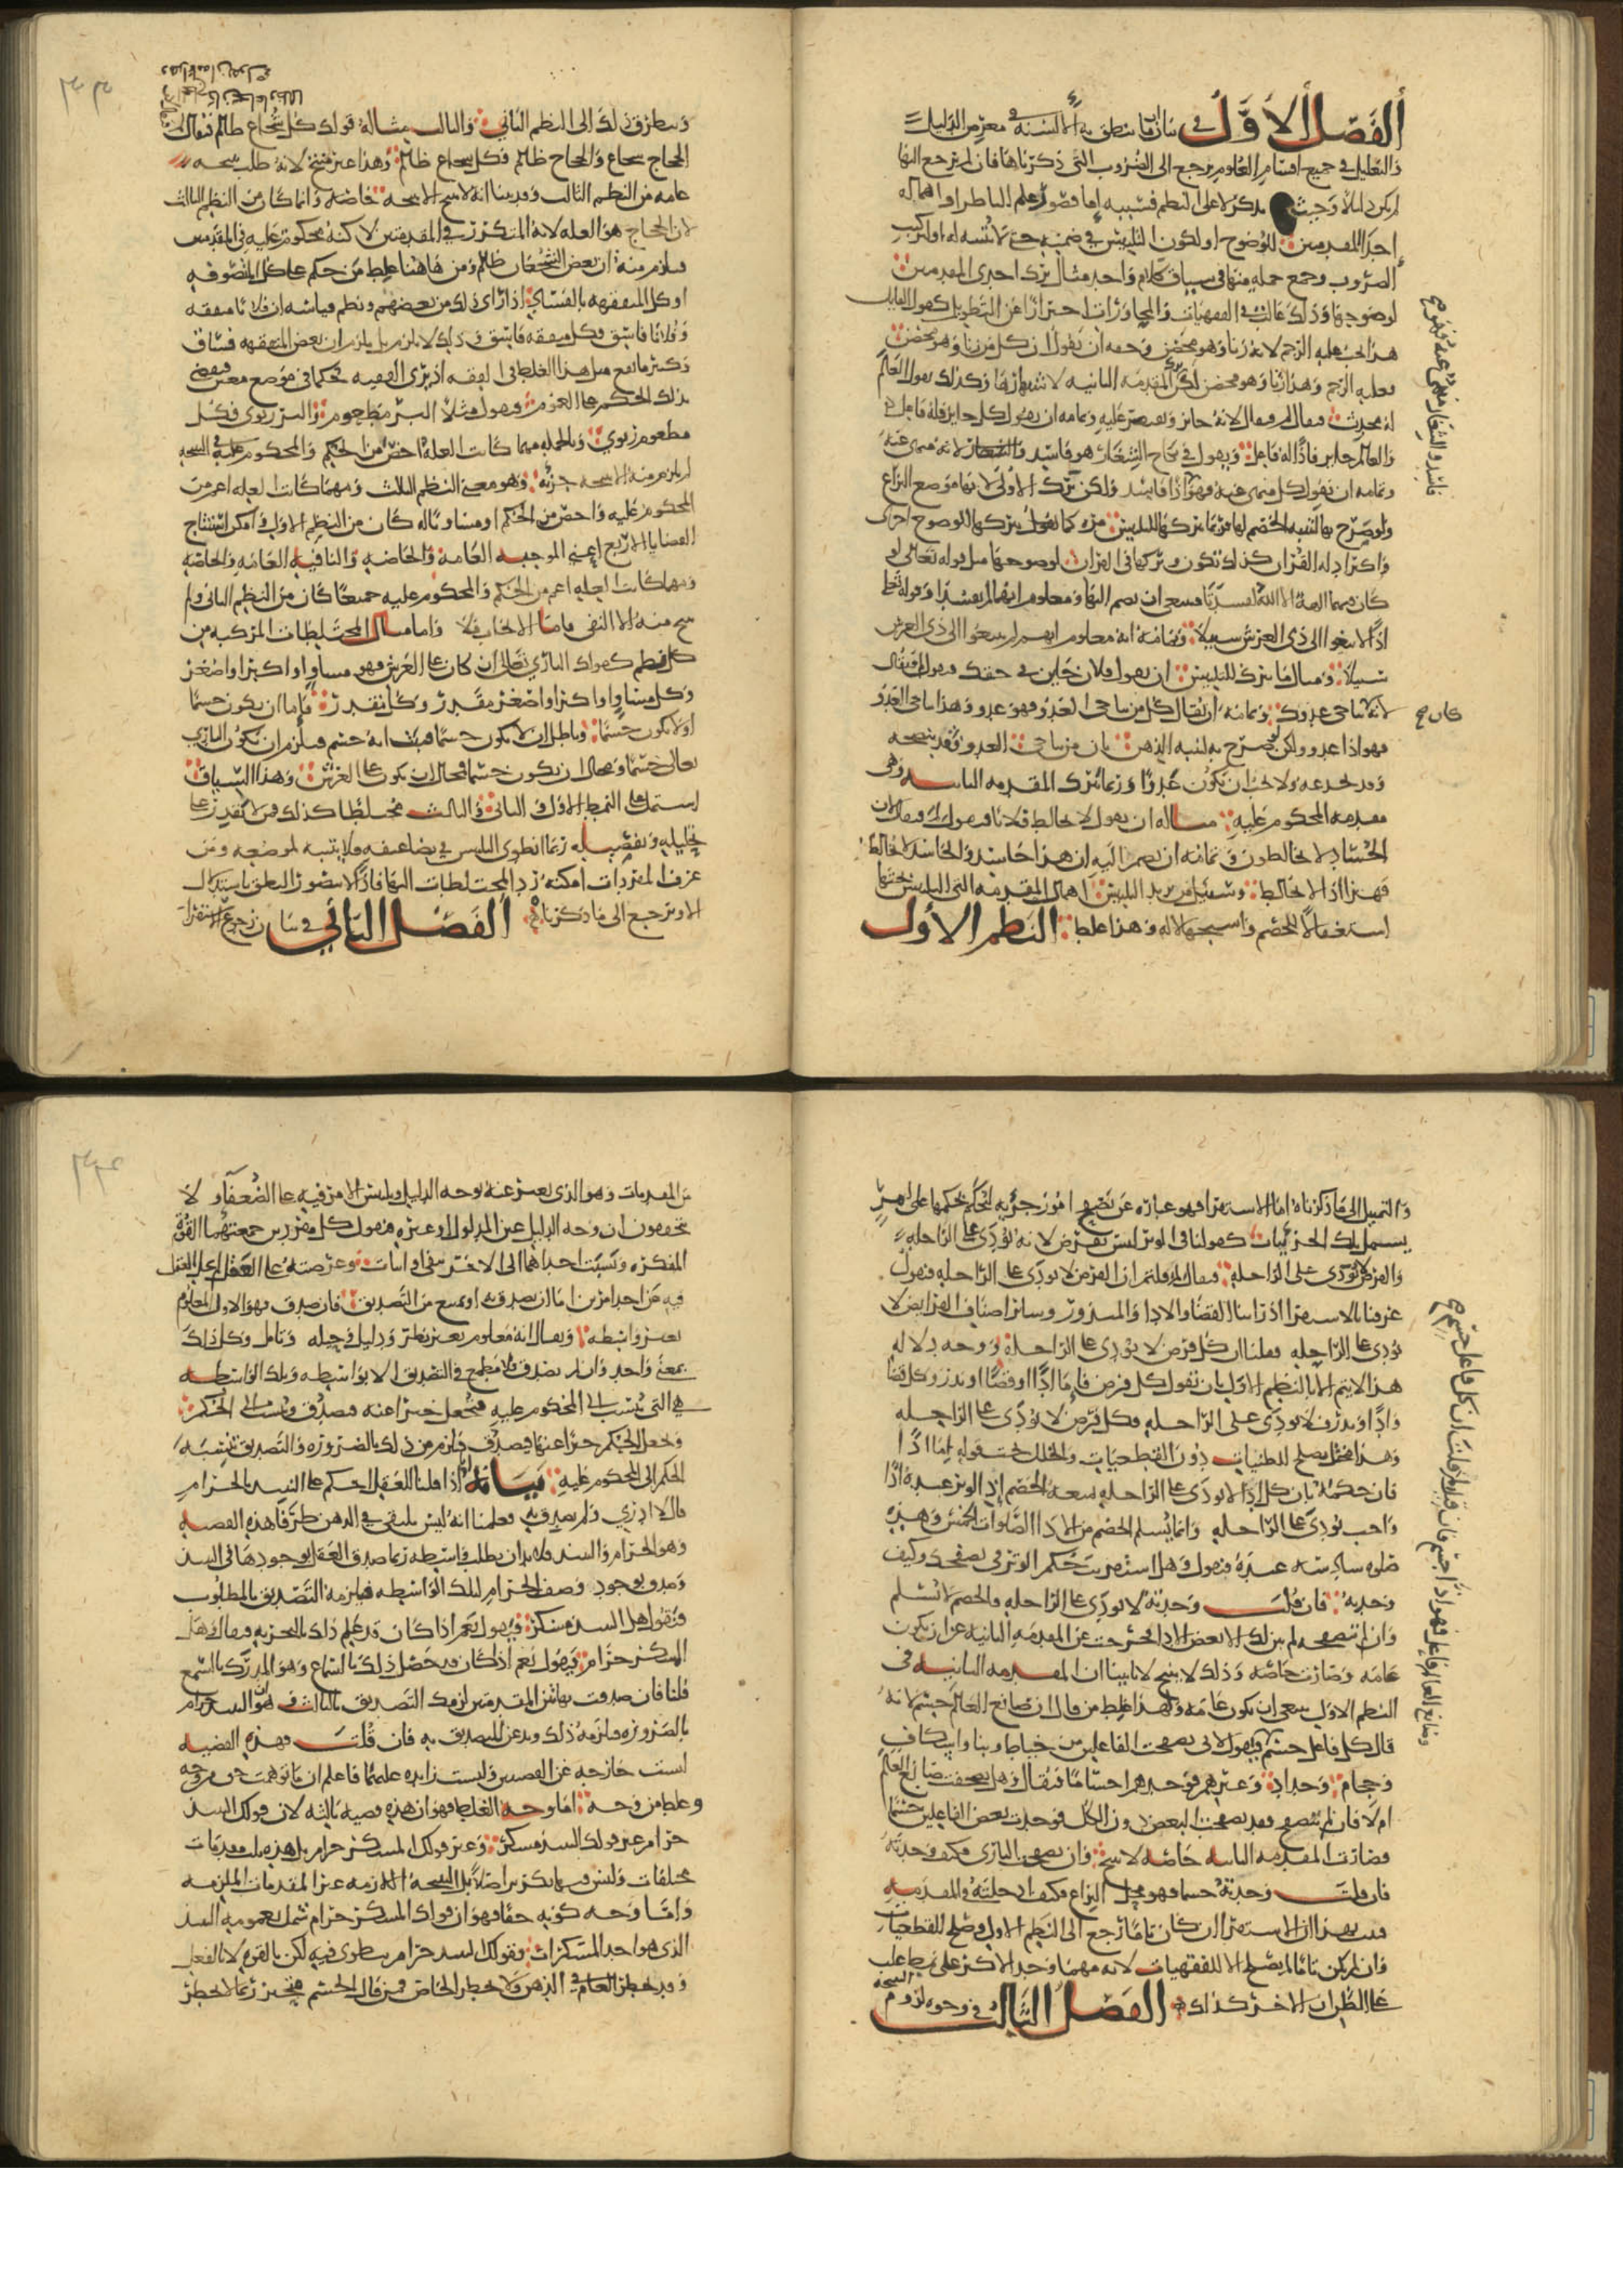 الفصل الاول في بيان ان ما تنطق به الالسنة في معرض الدليل
والتعليل في جميع اقسام العلوم يرجع الى الضروب التي ذكرناها فان لم يرجع اليها
لم يكن دليلا وحيث يذكر لا على النظم فسببه اما قصور علم الناظر او اهماله
احدى المقدمتين للوضوح او لكون التلبيس في ضمنه حتى لا ينتبه له او لتركيب
الضروب وجمع جملة منها في سياق كلام واحد مثال ترك احدى المقدمتين
لوضوحها وذلك غالب في الفقهيات والمحاورات احترازا عن التطويل كقول القايل
هذا يجب عليه الرجم لانه زنا وهو محصن وحقه ان يقول ان كل من زنا وهو محصن
فعليه الرجم وهذا زنا وهو محصن لكن ترك المقدمة الثانية لاشتهارها وكذلك يقول العالم
له محدث فيقال لم فيقال لانه جايز ويقتصر عليه وتمامه ان يقول كل جايز فله فاعل
والعالم جايز فاذا له فاعل ويقول في نكاح الشغار هو فاسد لانه منهى عنه
وتمامه ان يقول كل منهى عنه فهو اذا فاسد ولكن ترك الاولى لانها موضع النزاع
ولو صرح بها لتنبه الخصم لها فربما تركها للتلبيس مرة كما تركها للوضوح اخرى
واكثر ادلة القران كذلك تكون وتركها في القران لوضوحها مثل قوله تعالى لو
كان فيهما الهة الا الله لفسدتا فينبغي ان يضم اليها ومعلوم انهما لم يفسدا وقوله تعالى
اذا لابتغوا الى ذي العرش سبيلا وتمامه انه معلوم انهم لم يبتغوا الى ذي العرش
سبيلا ومثال ما يترك للتلبيس ان يقول فلان خاين في حقك فيقول لم فيقال
لانه كان يناجي عدوك وتمامه ان يقال كل من يناجي العدو فهو عدو وهذا يناجي العدو
فهو اذا عدو ولكن لو صرح به لتنبه الذهن بان من يناجي العدو وقد ينصحه
وقد يخدعه ولا يجب ان يكون عدوا وربما يترك المقدمة الثانية وهي
مقدمة المحكوم عليه مثاله ان يقول لا تخالط فلانا فيقول لم فيقال لان
الحساد لا يخالطون وتمامه ان يضم اليه ان هذا حاسد والحاسد لا يخالط
فهذا اذا لا يخالط وسبيل من يريد التلبيس اهمال المقدمة التي التلبيس تحتها
استغفالا للخصم واستجهالا له وهذا غلط النظم الاول
فاسد والشغار منهى عنه فهو صح
كان صح
ويتطرق ذلك الى النظم الثاني والثالث مثاله قولك كل شجاع ظالم فيقال لم
الحجاج شجاع والحجاج ظالم فكل شجاع ظالم وهذا غير منتج لانه طلب نتيجة
عامة من النظم الثالث وقد بينا انه لا ينتج الا نتيجة خاصة وانما كان من النظم الثالث
لان الحجاج هو العلة لانه المتكرر في المقدمتين لكنه محكوم عليه في المقدمتين
فيلزم منه ان بعض الشجعان ظالم ومن هاهنا غلط من حكم على كل المتصوفة
او كل المتفقهة بالفساد اذا راى ذلك من بعضهم ونظم قياسه ان فلانا متفقه
وفلانا فاسق فكل متفقه فاسق وذلك لا يلزم بل يلزم ان بعض المتفقهة فساق
وكثيرا ما يقع مثل هذا الغلط في الفقه اذ يرى الفقيه حكما في موضع معين فيقضي
بذلك الحكم على العموم فيقول مثلا البر مطعوم والبر ربوي فكل
مطعوم ربوي وبالجملة مهما كانت العلة اخص من الحكم والمحكوم عليه في النتيجة
لم يلزم منه الا نتيجة جزئية وهو معنى النظم الثالث ومهما كانت العلة اعم من
المحكوم عليه واخص من الحكم او مساوية له كان من النظم الاول وامكن استنتاج
القضايا الاربع اعني الموجبة العامة والخاصة والنافية العامة والخاصة
ومهما كانت العلة اعم من الحكم والمحكوم عليه جميعا كان من النظم الثاني ولم
ينتج منه الا النفي فاما الايجاب فلا واما مثال المختلطات المركبة من
كل نظم كقولك الباري تعالى ان كان على العرش فهو مساو او اكبر او اصغر
وكل مساو او اكبر او اصغر مقدر وكل مقدر فاما ان يكون جسما
او لا يكون جسما وباطل ان لا يكون جسما فثبت انه جسم فيلزم ان يكون الباري
تعالى جسما ومحال ان يكون جسما فمحال ان يكون على العرش وهذا السياق
اشتمل على النظم الاول والثاني والثالث مختلطا كذلك فمن لا يقدر على
تحليله وتفصيله ربما انطوى التلبيس في تضاعيفه فلا يتنبه لموضعه ومن
عرف المفردات امكنه رد المختلطات اليها فاذا لا يتصور النطق باستدلال
الا ويرجع الى ما ذكرناه الفصل الثاني في بيان رجوع الاستقراء
والتمثيل الى ما ذكرناه اما الاستقرا فهو عبارة عن تصفح امور جزئية ليحكم بحكمها على امر
يشتمل تلك الجزئيات كقولنا في الوتر ليس بفرض لانه يؤدى على الراحلة
والفرض لا يؤدى على الراحلة فيقال لم قلتم ان الفرض لا يؤدى على الراحلة فيقول
عرفنا بالاستقرا اذ راينا القضا والادا والمنذور وساير اصناف الفرايض لا
تؤدى على الراحلة فقلنا ان كل فرض لا يؤدى على الراحلة ووجه دلالة
هذا لا يتم الا بالنظم الاول بان تقول كل فرض فاما ادا او قضا او نذر وكل قضا
وادا ونذر فلا يؤدى على الراحلة فكل فرض لا يؤدى على الراحلة
وهذا مختل يصلح للظنيات دون القطعيات والخلل تحت قوله اما ادا
فان حكمه بان كل ادا لا يؤدى على الراحلة يمنعه الخصم اذ الوتر عنده ادا
واجب يؤدى على الراحلة وانما يسلم الخصم من الادا الصلوات الخمس وهذه
صلوة سادسة عنده فيقول وهل استقريت حكم الوتر في تصفحك وكيف
وجدته فان قلت وجدته لا يؤدى على الراحلة فالخصم لا يسلم
وان لم تتصفحه لم يبن لك الا بعض الادا فخرجت عن المقدمة الثانية عن ان تكون
عامة وصارت خاصة وذلك لا ينتج لانا بينا ان المقدمة الثانية في
النظم الاول ينبغي ان تكون عامة ولهذا غلط من قال ان صانع العالم جسم لانه
قال كل فاعل جسم فيقول لاني تصفحت الفاعلين من خياط وبنا واسكاف
وحجام وحداد وغيرهم فوجدتهم اجساما فيقال وهل تصفحت صانع العالم
ام لا فان لم تتصفح فقد تصفحت البعض دون الكل فوجدت بعض الفاعلين جسما
فصارت المقدمة الثانية خاصة لا تنتج وان تصفحت الباري فكيف وجدته
فان قلت وجدته جسما فهو محل النزاع فكيف ادخلته في المقدمة
فثبت بهذا ان الاستقرا ان كان تاما رجع الى النظم الاول وصلح للقطعيات
وان لم يكن تاما لم يصلح الا للفقهيات لانه مهما وجد الاكثر على نمط غلب
على الظن ان الاخر كذلك الفصل الثالث في وجه لزوم النتيجة
وصانع العالم فاعل فهو اذا جسم فان قيل لم قلت ان كل فاعل جسم صح
من المقدمات وهو الذي يعبر عنه بوجه الدليل ويلتبس الامر فيه على الضعفاء ولا
يتحققون ان وجه الدليل عين المدلول او غيره فنقول كل مفردين جمعتهما القوة
المفكرة ونسبت احدهما الى الاخر بنفي او اثبات وعرضته على العقل لم يخل العقل
فيه من احد امرين اما ان يصدق به او يمتنع من التصديق فان صدق فهو الاول المعلوم
بغير واسطة ويقال انه معلوم بغير نظر ودليل وحيلة وتامل وكل ذلك
بمعنى واحد وان لم يصدق فلا مطمع في التصديق الا بواسطة وتلك الواسطة
هي التي تنسب الى المحكوم عليه فتجعل خبرا عنه فيصدق وتنسب الى الحكم
وتجعل الحكم خبرا عنها فيصدق فيلزم من ذلك بالضرورة والتصديق بنسبة
الحكم الى المحكوم عليه بيانه اذا قلنا للعقل احكم على النبيذ بالحرام
قال لا ادري ولم يصدق به فعلمنا انه ليس يلتقي في الذهن طرفا هذه القضية
وهو الحرام والنبيذ فلا بد ان يطلب واسطة ربما صدق العقل بوجودها في النبيذ
وصدق بوجود وصف الحرام لتلك الواسطة فيلزمه التصديق بالمطلوب
فنقول هل النبيذ مسكر فيقول نعم اذا كان قد علم ذلك بالتجربة فيقال وهل
المسكر حرام فيقول نعم اذا كان قد حصل ذلك بالسماع وهو المدرك بالسمع
قلنا فان صدقت بهاتين المقدمتين لزمك التصديق بالثالث وهو ان النبيذ حرام
بالضرورة فيلزمه ذلك ويذعن للتصديق به فان قلت فهذه القضية
ليست خارجة عن القضيتين وليست زايدة عليهما فاعلم ان ما توهمته حق من وجه
وغلط من وجه اما وجه الغلط فهو ان هذه قضية ثالثة لان قولك النبيذ
حرام غير قولك النبيذ مسكر وغير قولك المسكر حرام بل هذه ثلث مقدمات
مختلفات وليس فيها تكرير اصلا بل النتيجة اللازمة غير المقدمات الملزمة
واما وجه كونه حقا فهو ان قولك المسكر حرام شمل بعمومه النبيذ
الذي هو احد المسكرات وقولك النبيذ حرام ينطوي فيه لكن بالقوة لا بالفعل
وقد يخطر العام في الذهن ولا يخطر الخاص فمن قال الجسم متحيز ربما لا يخطر